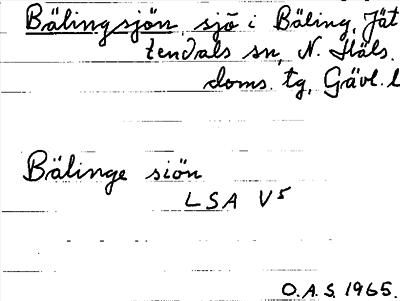 Bälingsjön sjö i Bäling, Jät
tendals sn, N. Häls.
doms. tg, Gävl. l
Bälinge siön
LSA V5
O.A.S. 1965.